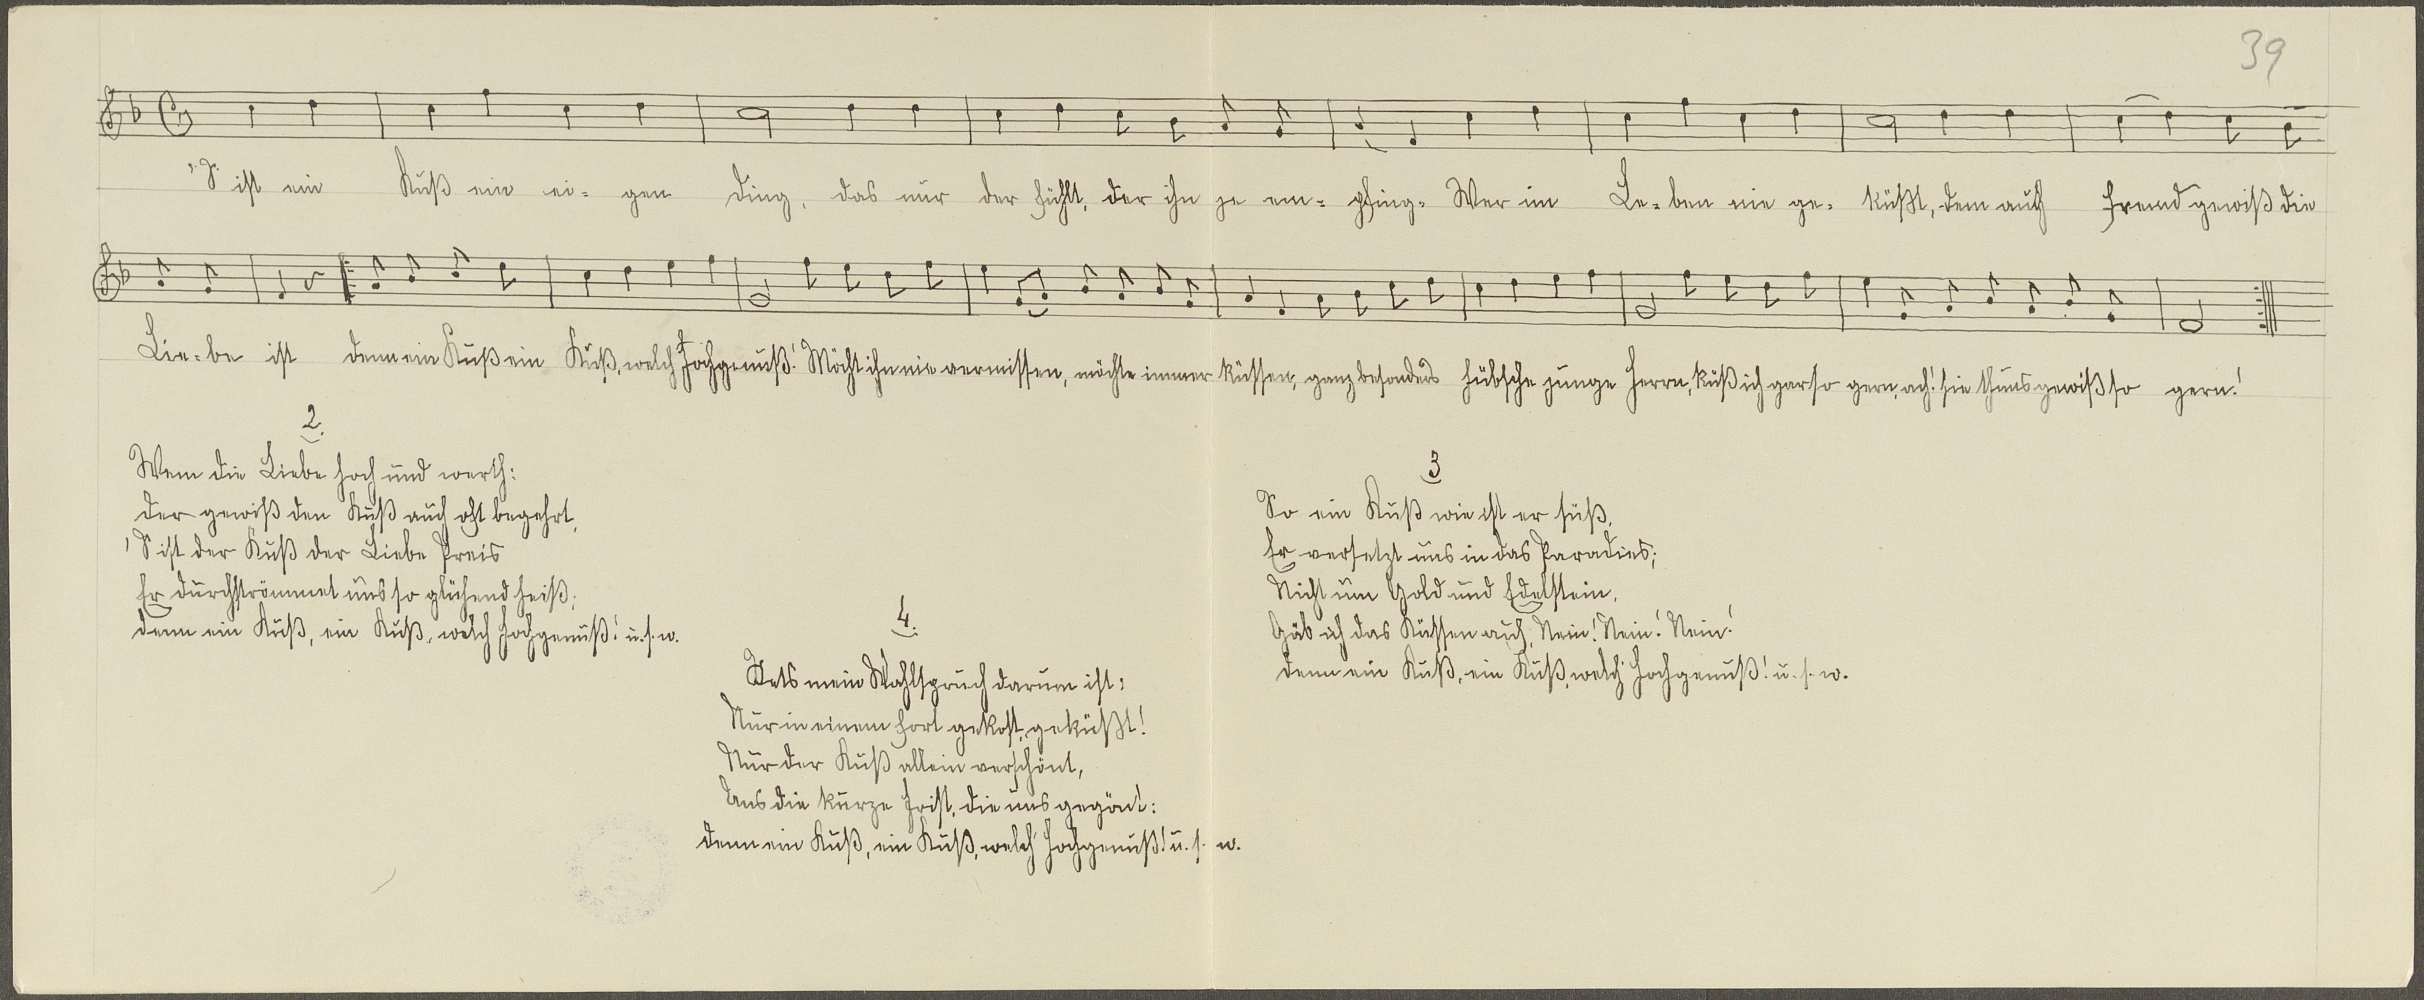 39
'S ist ein Kuß ein ei- gen Ding, das nur der fühlt, der ihn je em- pfing. Wer im Le- ben nie ge- küßt, dem auch fremd gewiß die
Lie- be ist denn ein Kuß ein Kuß, welch Hochgenuß! Möcht ihn nie vermissen, möchte immer küssen, ganz besonders hübsche junge Herrn, küß ich gar so gern, ach! sie thuns gewiß so gern!
2.
Wem die Liebe hoch und werth:
der gewiß den Kuß auch oft begehrt,
'S ist der Kuß der Liebe Preis
Er durchströmmet uns so glühend heiß;
denn ein Kuß, ein Kuß, welch Hochgenuß! u. s. w.
3
So ein Kuß wie ist er süß,
Er versetzt uns in das Paradies;
Nicht um Gold und Edelstein,
Gäb ich das Küssen auch, Nein! Nein! Nein!
denn ein Kuß, ein Kuß, welch Hochgenuß! u. s. w.
4.
Stets mein Wahlspruch darum ist:
Nur in einem fort gekost, geküßt!
Nur der Kuß allein verschönt,
Uns die kurze Frist, die uns gegönt:
denn ein Kuß, ein Kuß, welch Hochgenuß! u. s. w.